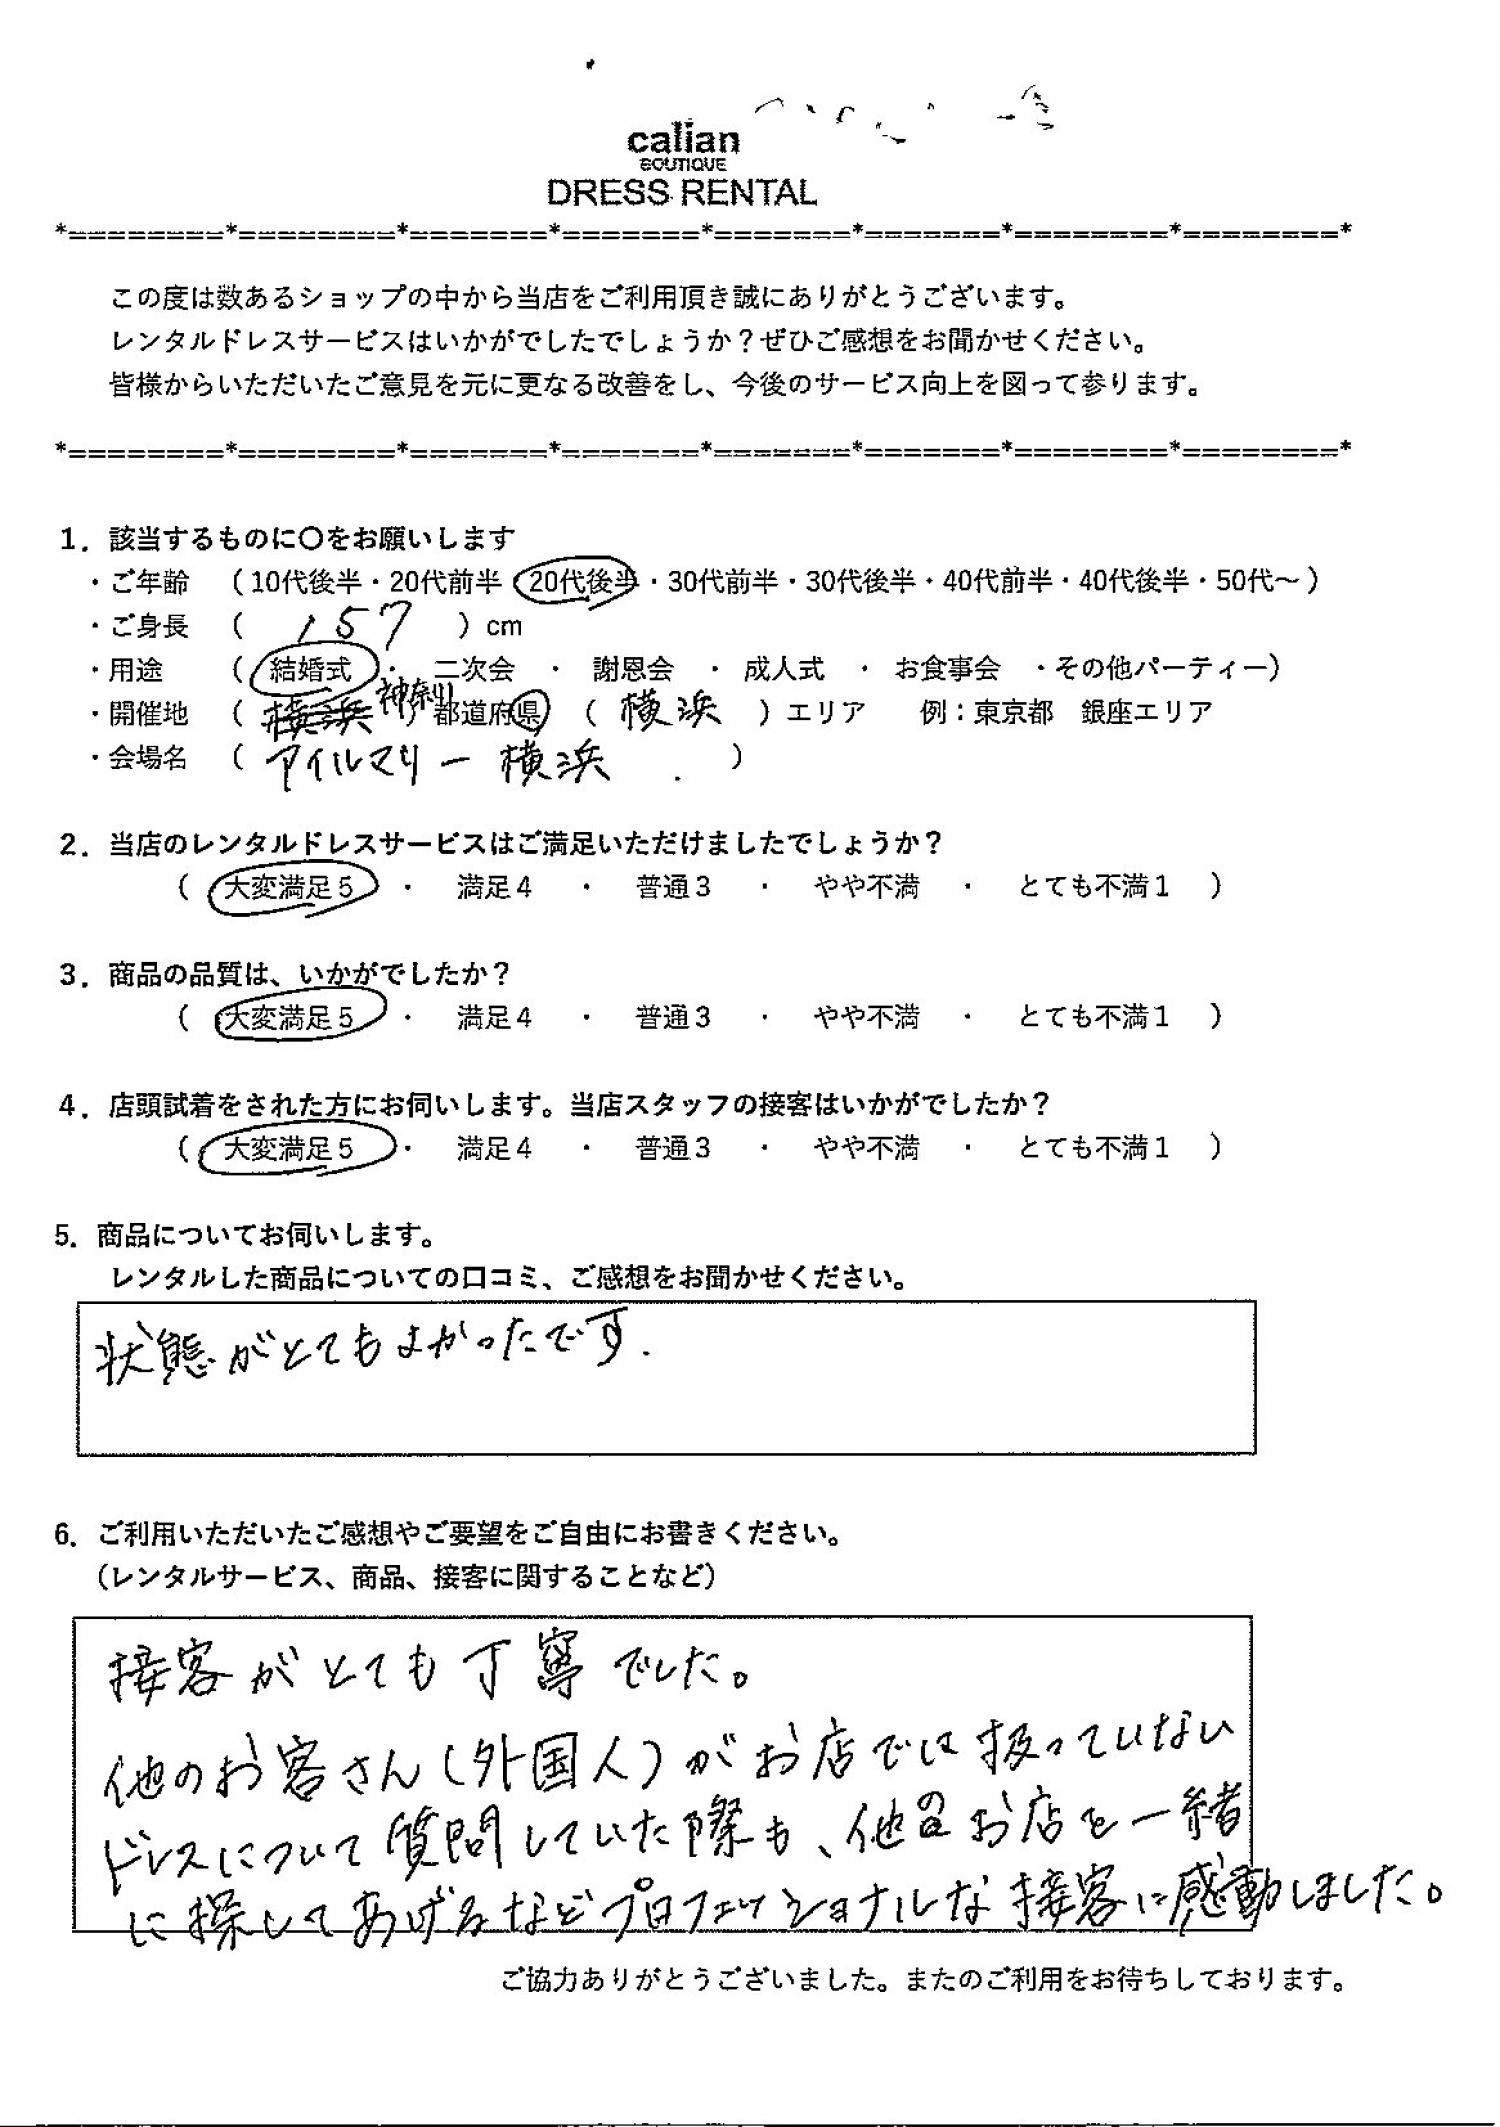 calian
BOUTIQUE
DRESS RENTAL
*========*========*=======*=======*=======*=======*========*========*
この度は数あるショップの中から当店をご利用頂き誠にありがとうございます。
レンタルドレスサービスはいかがでしたでしょうか？ぜひご感想をお聞かせください。
皆様からいただいたご意見を元に更なる改善をし、今後のサービス向上を図って参ります。
*========*========*=======*=======*=======*=======*========*========*
1．該当するものに〇をお願いします
・ご年齢　（10代後半・20代前半・20代後半・30代前半・30代後半・40代前半・40代後半・50代～）
・ご身長　（　157　）cm
・用途　（結婚式　・　二次会　・　謝恩会　・　成人式　・　お食事会　・その他パーティー）
・開催地　（　横浜　神奈川　）都道府県　（　横浜　）エリア　　例：東京都　銀座エリア
・会場名　（　アイルマリー横浜　）
2．当店のレンタルドレスサービスはご満足いただけましたでしょうか？
（　大変満足5　・　満足4　・　普通3　・　やや不満　・　とても不満1　）
3．商品の品質は、いかがでしたか？
（　大変満足5　・　満足4　・　普通3　・　やや不満　・　とても不満1　）
4．店頭試着をされた方にお伺いします。当店スタッフの接客はいかがでしたか？
（　大変満足5　・　満足4　・　普通3　・　やや不満　・　とても不満1　）
5．商品についてお伺いします。
レンタルした商品についての口コミ、ご感想をお聞かせください。
状態がとてもよかったです.
6．ご利用いただいたご感想やご要望をご自由にお書きください。
（レンタルサービス、商品、接客に関することなど）
接客がとても丁寧でした。
他のお客さん(外国人)がお店では扱っていない
ドレスについて質問していた際も、他のお店を一緒
に探してあげるなどプロフェッショナルな接客に感動しました。
ご協力ありがとうございました。またのご利用をお待ちしております。